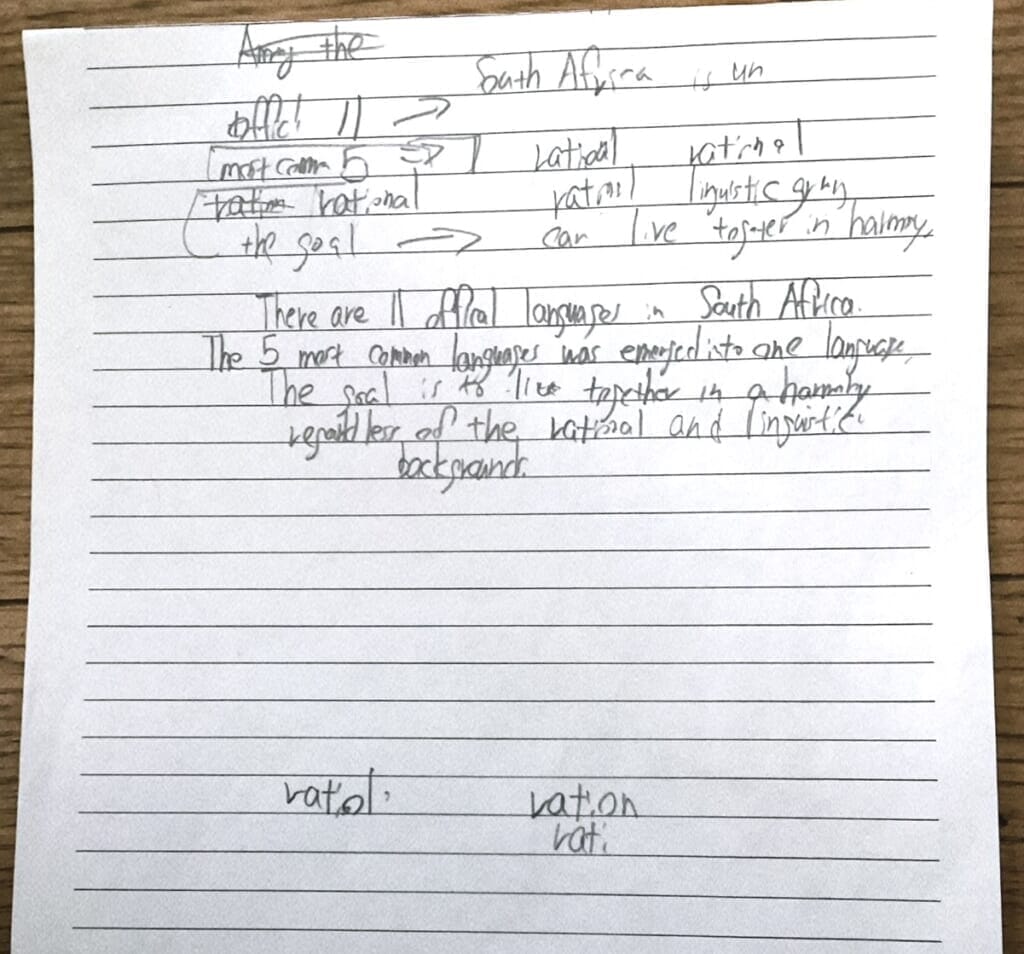 the
South Africa is un
11 →
most comm 5 ⇒ 1 rational rational
rational linguistic
the goal → can live togter in harmony
There are 11 offical languages in South Africa.
The 5 most common languages was emerged into one language.
The goal is to live together in a harmony
regardless of the rational and linguistic
backgrounds.
ration
rati